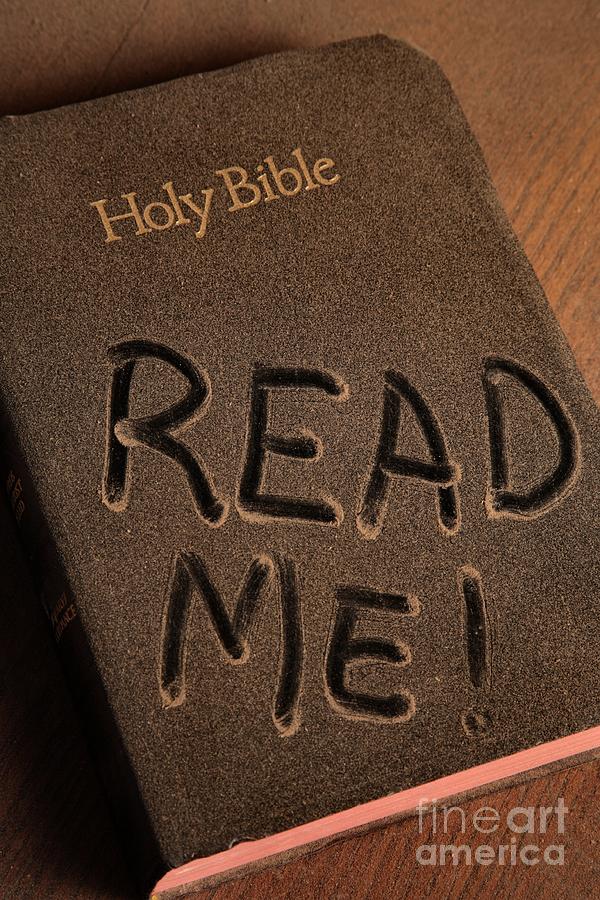 Holy Bible
READ
ME!
fineart
america